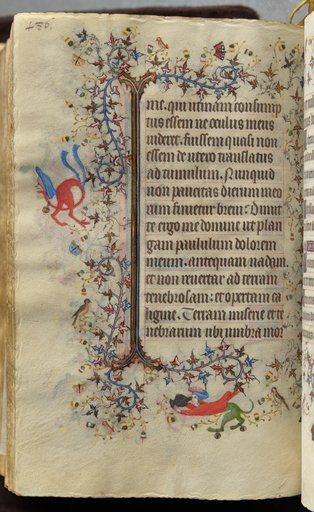 me. qui utinam consump
tus essem ne oculus meus
videret. fuissem quasi non
essem de utero translatus
ad tumulum. Nunquid
non paucitas dierum meo
rum finietur brevi: Dimit
te ergo me domine ut plan
gam paululum dolorem
meum. antequam vadam.
et non revertar ad terram
tenebrosam: et opertam ca
ligine. Terram miserie et te
nebrarum ubi umbra mor